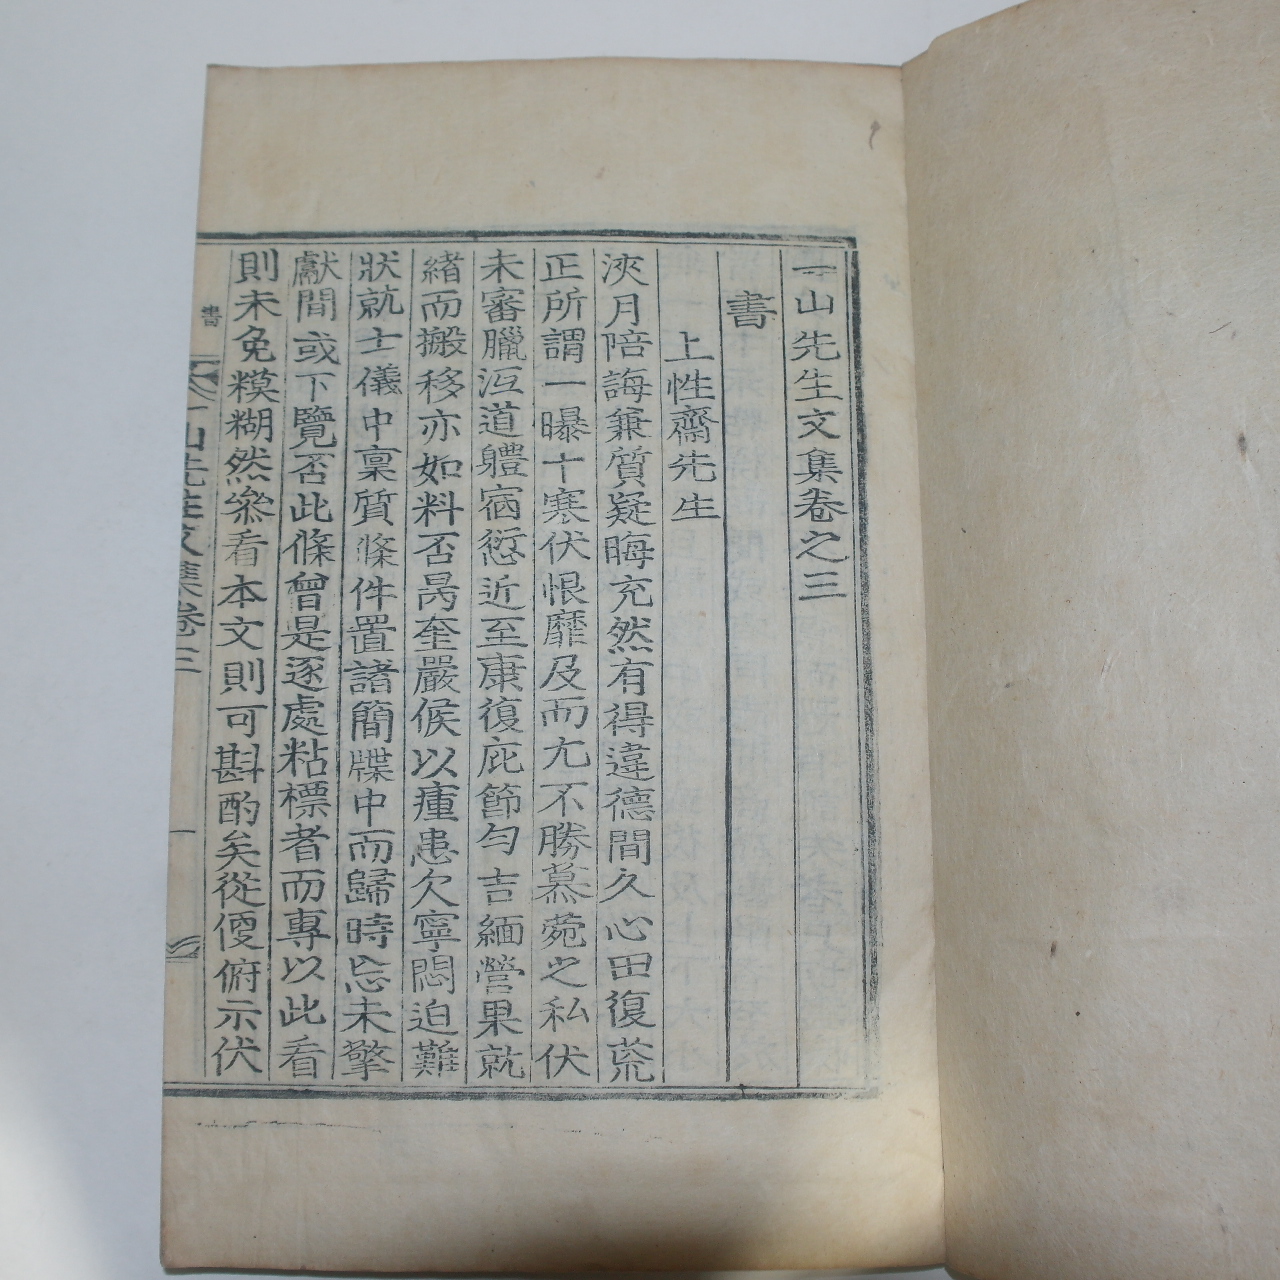 一山先生文集卷之三
書
上性齋先生
浹月陪誨兼質疑晦充然有得違德間久心田復荒
正所謂一曝十寒伏恨靡及而尤不勝慕菀之私伏
未審臘沍道軆宿愆近至康復庇節勻吉緬營果就
緖而搬移亦如料否昺奎嚴候以瘇患欠寧悶迫難
狀就士儀中稟質條件置諸簡牒中而歸時忘未擎
獻間或下覽否此條曾是逐處粘標者而專以此看
則未免糢糊然叅看本文則可斟酌矣從便俯示伏
書
一山先生文集卷三
一